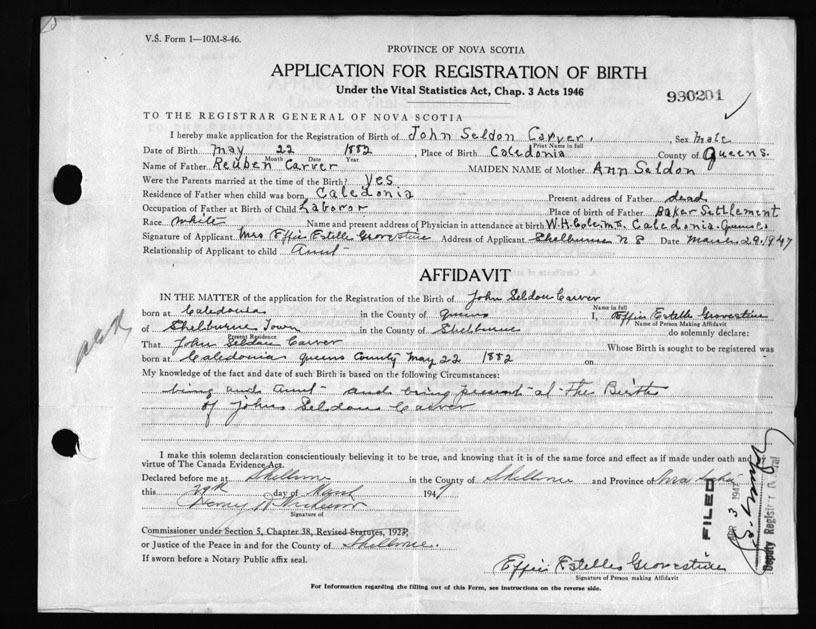 V.S. Form 1—10M-8-46.
PROVINCE OF NOVA SCOTIA
APPLICATION FOR REGISTRATION OF BIRTH
Under the Vital Statistics Act, Chap. 3 Acts 1946
990201
TO THE REGISTRAR GENERAL OF NOVA SCOTIA
I hereby make application for the Registration of Birth of John Seldon Carver, Sex male
Print Name in full
Date of Birth May 22 1882, Place of Birth Caledonia County of Queens.
Month Date Year
Name of Father Reuben Carver MAIDEN NAME of Mother Ann Seldon
Were the Parents married at the time of the Birth? Yes
Residence of Father when child was born Caledonia Present address of Father dead
Occupation of Father at Birth of Child Laboror Place of birth of Father Baker Settlement
Race white Name and present address of Physician in attendance at birth W.H. Caledonia. Queens Co
Signature of Applicant Mrs Effie Estelle Grovestine Address of Applicant Shelburne N S Date March 29, 1947
Relationship of Applicant to child Aunt
AFFIDAVIT
IN THE MATTER of the application for the Registration of the Birth of John Seldon Carver
Name in full
born at Caledonia in the County of Queens I, Effie Estelle Grovestine
Name of Person Making Affidavit
of Shelburne Town in the County of Shelburne do solemnly declare:
Present Residence
That John Seldon Carver Whose Birth is sought to be registered was
born at Caledonia Queens County May 22 1882 on
My knowledge of the fact and date of such Birth is based on the following Circumstances:
being and aunt and being present at the Birth
of John Seldon Carver
I make this solemn declaration conscientiously believing it to be true, and knowing that it is of the same force and effect as if made under oath and
virtue of The Canada Evidence Act.
Declared before me at Shelburne in the County of Shelburne and Province of Nova Scotia
this 29th day of March 1947
Henry
Signature of
Commissioner under Section 5, Chapter 38, Revised Statutes, 1923,
or Justice of the Peace in and for the County of Shelburne.
If sworn before a Notary Public affix seal.
Effie Estelle Grovestine
Signature of Person making Affidavit
For Information regarding the filling out of this Form, see instructions on the reverse side.
FILED
3 1947
Deputy Registrar